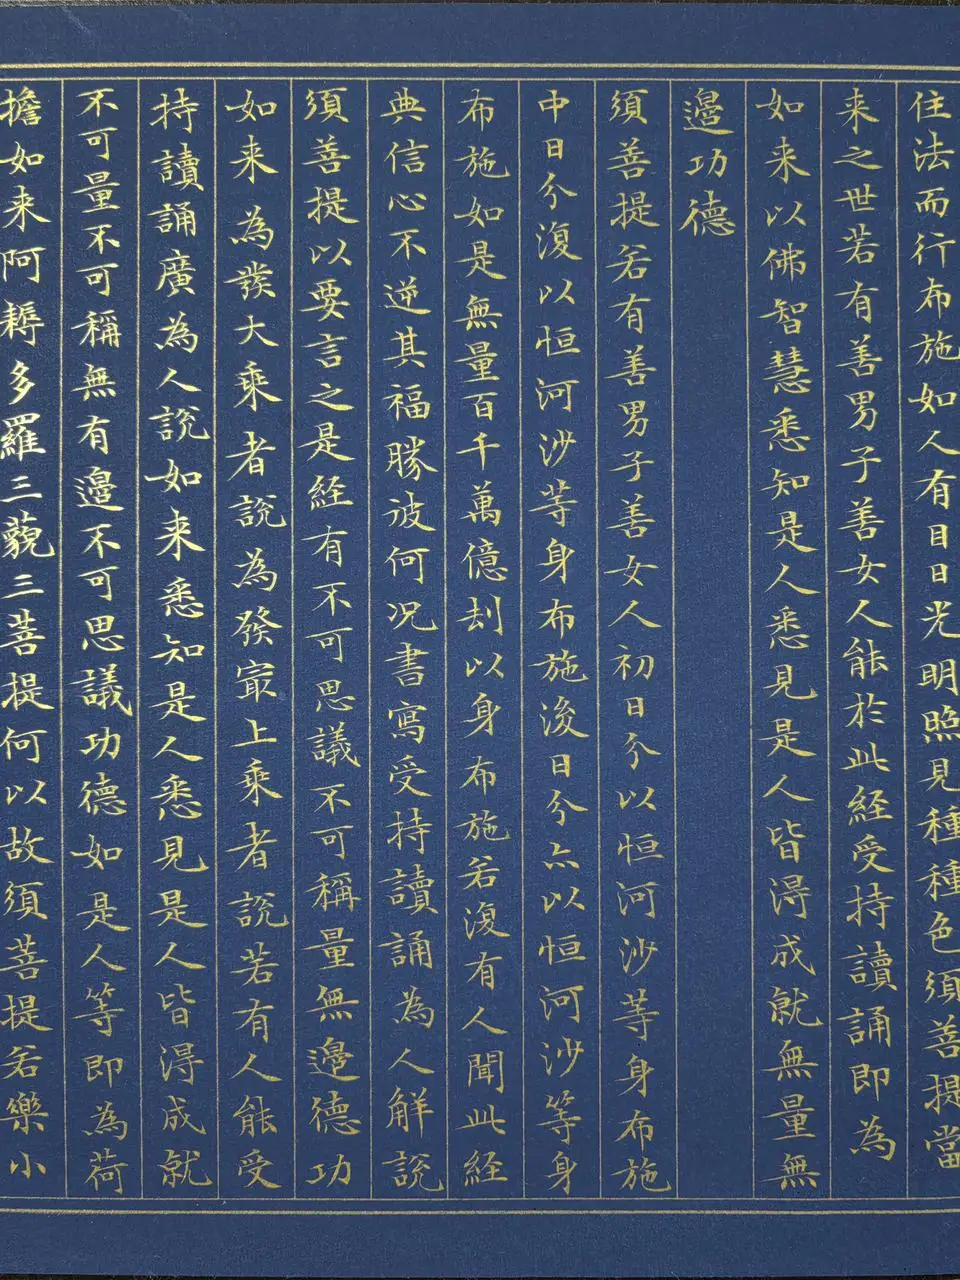 住法而行布施如人有目日光明照見種種色須菩提當
来之世若有善男子善女人能於此経受持讀誦即為
如来以佛智慧悉知是人悉見是人皆得成就無量無
邊功德
須菩提若有善男子善女人初日分以恒河沙等身布施
中日分復以恒河沙等身布施後日分亦以恒河沙等身
布施如是無量百千萬億刦以身布施若復有人聞此経
典信心不逆其福勝彼何况書寫受持讀誦為人解説
須菩提以要言之是経有不可思議不可稱量無邊德功
如来為發大乘者説為發冣上乘者説若有人能受
持讀誦廣為人説如来悉知是人悉見是人皆得成就
不可量不可稱無有邊不可思議功德如是人等即為荷
擔如来阿耨多羅三藐三菩提何以故須菩提若樂小